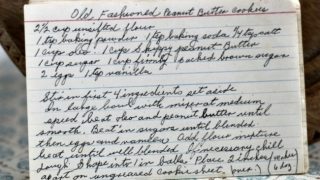 Old Fashioned Peanut Butter Cookies
2½ cup unsifted flour
1 tsp baking powder 1 tsp baking soda ¼ tsp salt
1 cup oleo 1 cup Skippy peanut butter
1 cup sugar 1 cup firmly packed brown sugar
2 eggs 1 tsp vanilla
Stir in first 4 ingredients set aside
In large bowl with mixer at medium
speed beat oleo and peanut butter until
smooth. Beat in sugars until blended
then eggs and vanilla. Add flour mixture
beat until well blended. If necessary chill
dough. Shape into 1 in balls. Place 2 inches
apart on ungreased cookie sheet. (over)